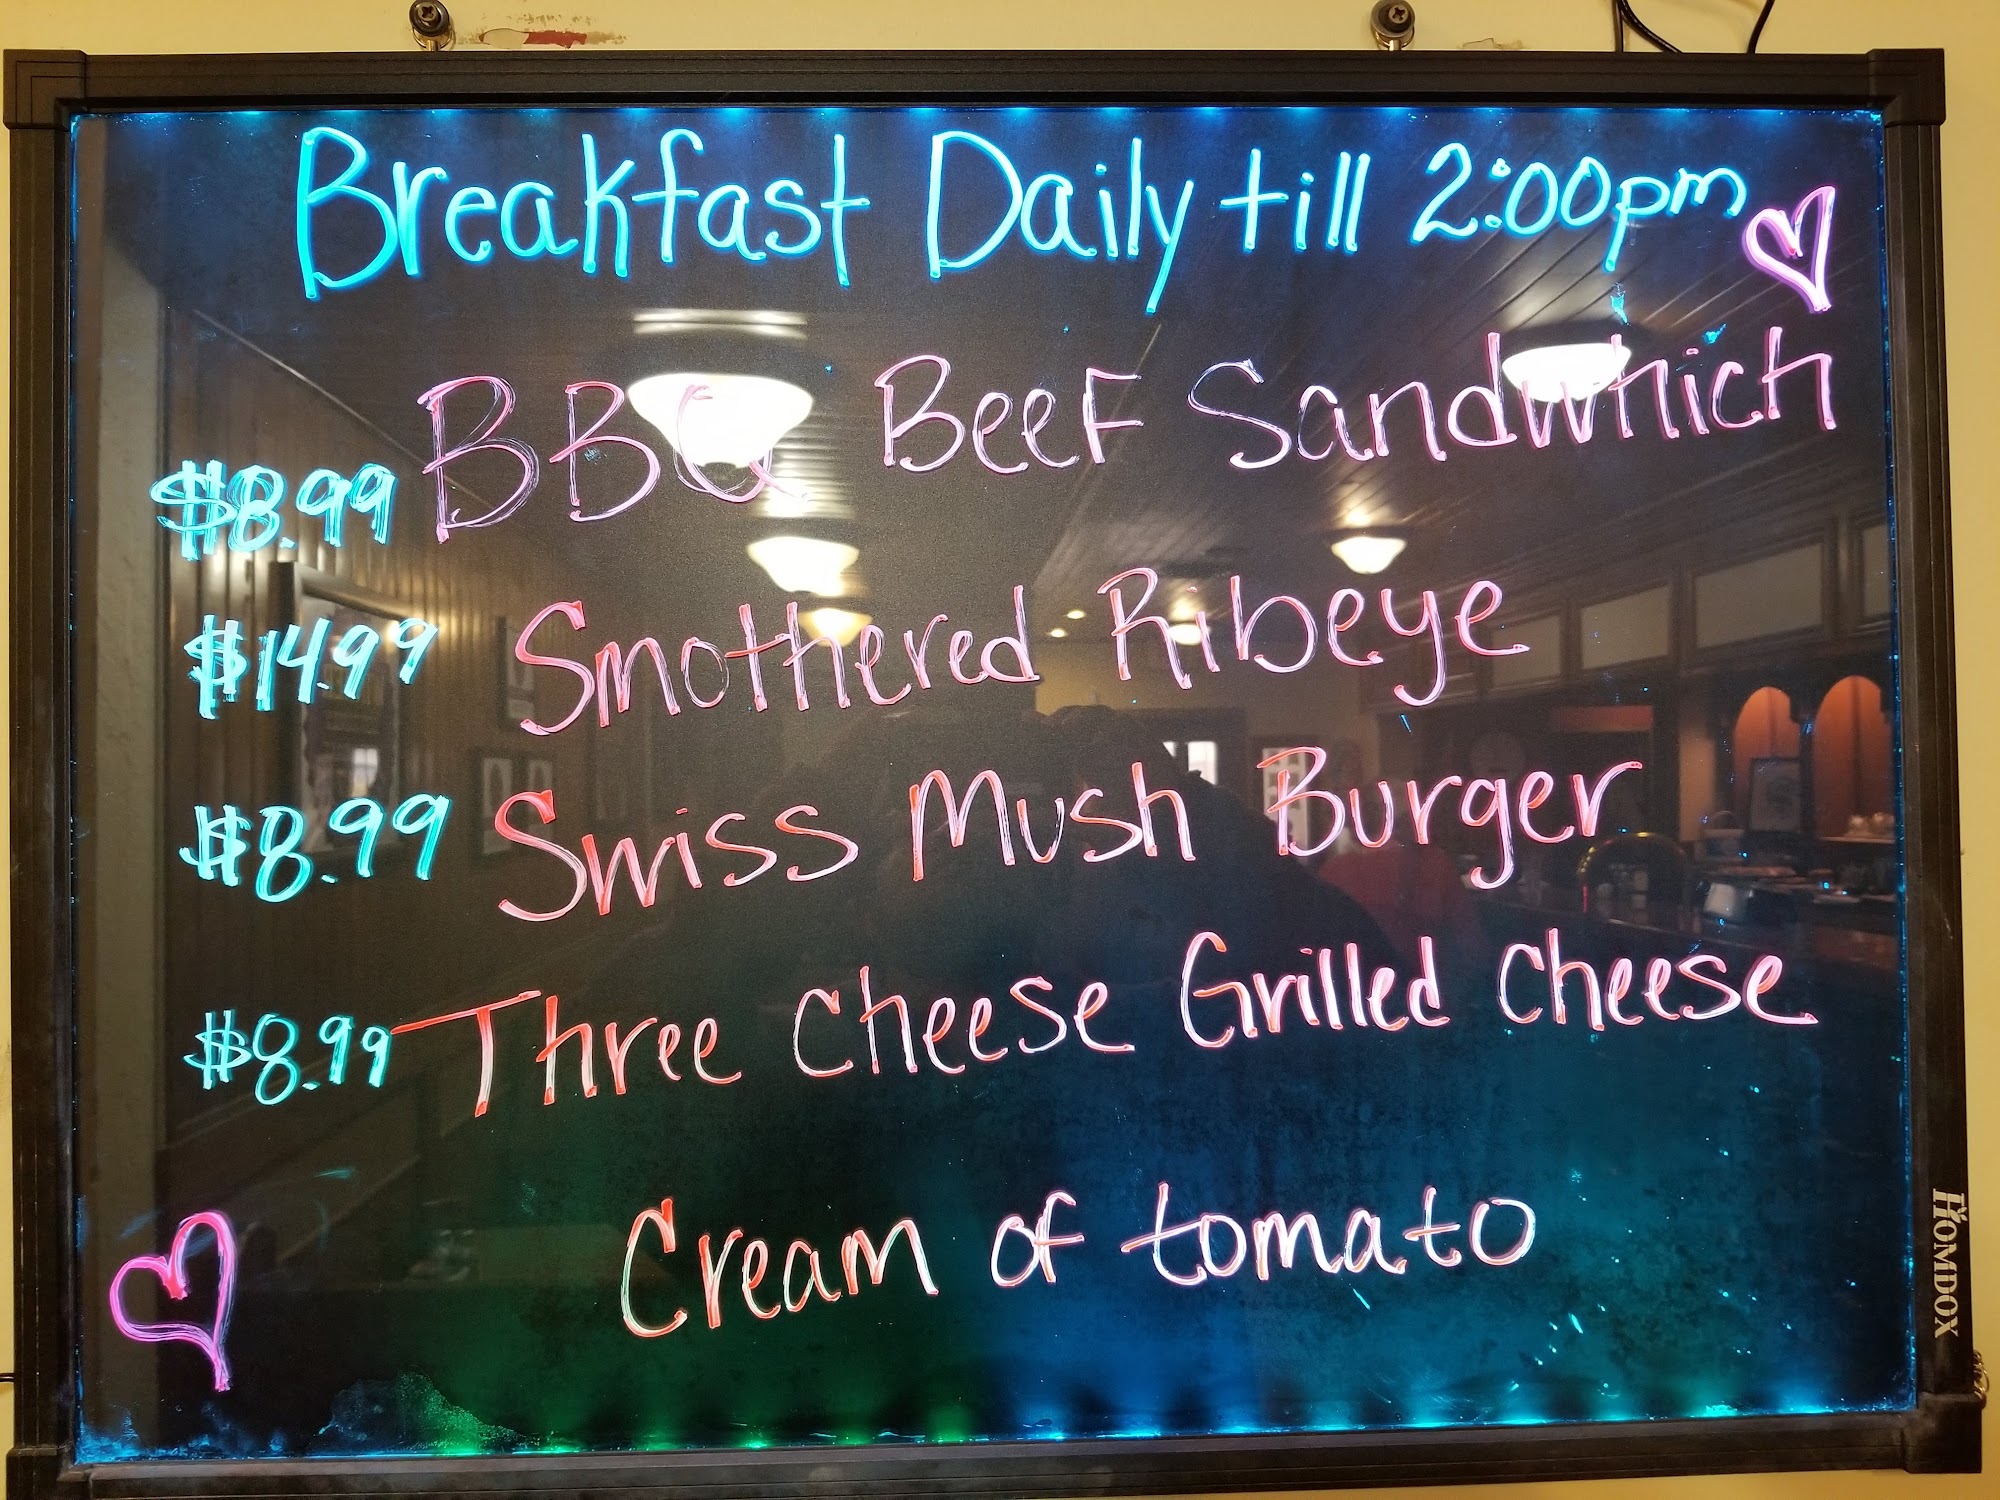 Breakfast Daily till 2:00pm
$8.99 BBQ Beef Sandwhich
$14.99 Smothered Ribeye
$8.99 Swiss Mush Burger
$8.99 Three Cheese Grilled Cheese
Cream of tomato
HOMDOX